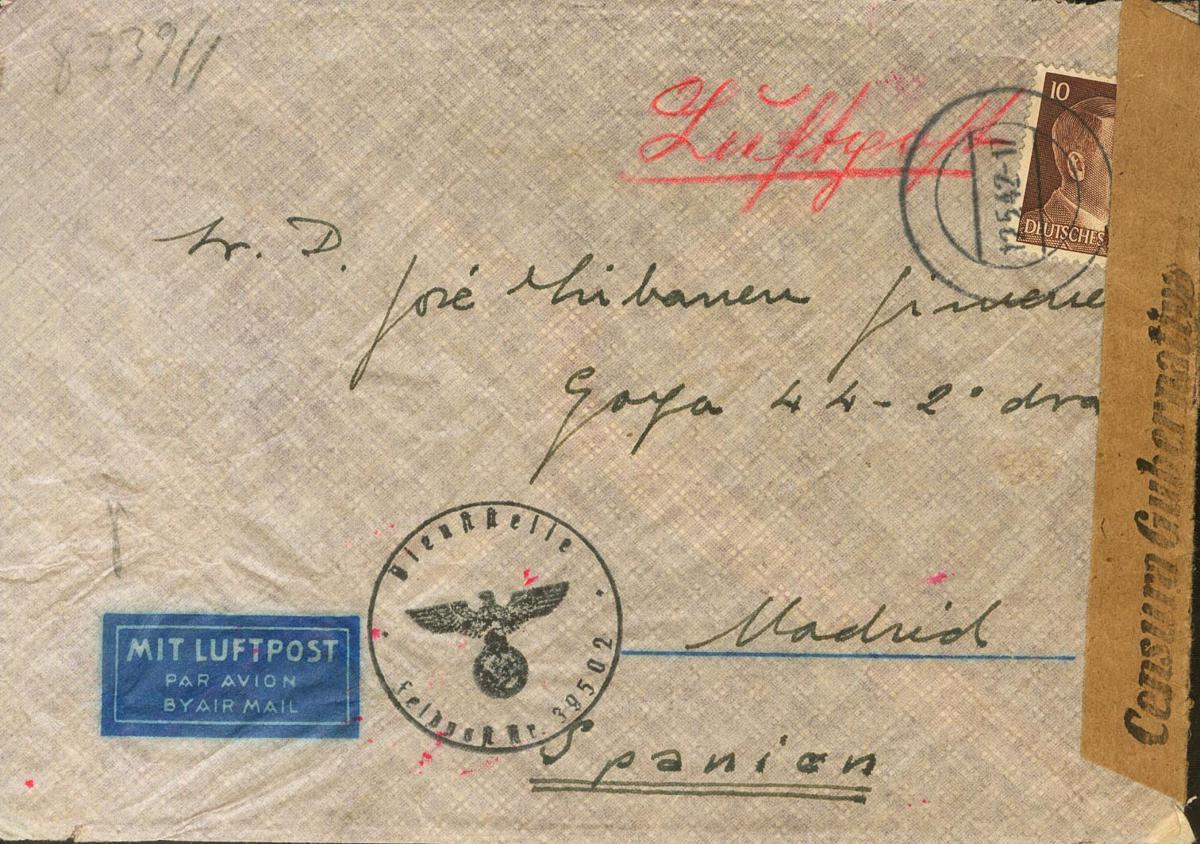 8-739/1
Luftpost
10
DEUTSCHES
12.5.42-1
Sr. D.
José Jimene
Goya 44-2° dra
Censura Gubernativa
Dienststelle
Feldpost Nr. 39502
Madrid
MIT LUFTPOST
PAR AVION
BY AIR MAIL
Spanien